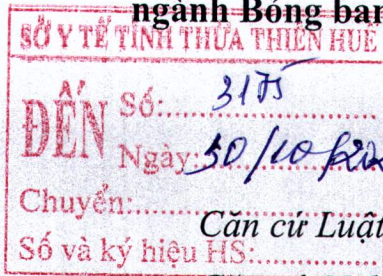 ngành Bóng bàn
SỞ Y TẾ TỈNH THỪA THIÊN HUẾ
ĐẾN
Số:
Ngày: 30/10/202
Chuyển:
Căn cứ Luật
Số và ký hiệu HS: